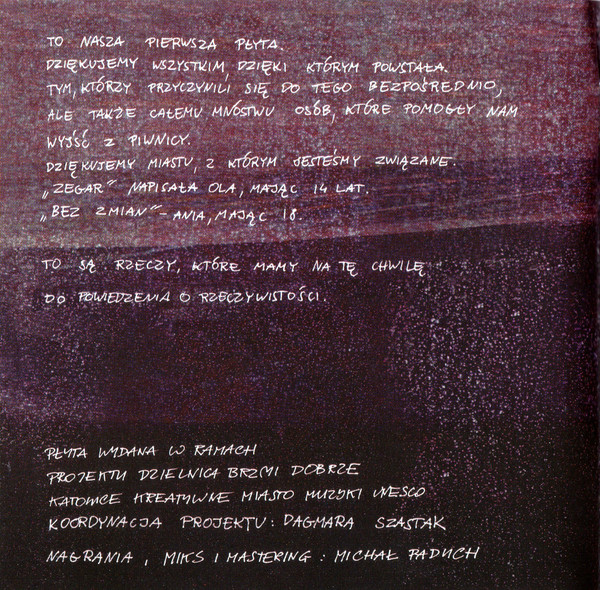 TO NASZA PIERWSZA PŁYTA.
DZIĘKUJEMY WSZYSTKIM, DZIĘKI KTÓRYM POWSTAŁA.
TYM, KTÓRZY PRZYCZYNILI SIĘ DO TEGO BEZPOŚREDNIO,
ALE TAKŻE CAŁEMU MNÓSTWU OSÓB, KTÓRE POMOGŁY NAM
WYJŚĆ Z PIWNICY.
DZIĘKUJEMY MIASTU, Z KTÓRYM JESTEŚMY ZWIĄZANE.
„ZEGAR” NAPISAŁA OLA, MAJĄC 14 LAT.
„BEZ ZMIAN” – ANIA, MAJĄC 18.
TO SĄ RZECZY, KTÓRE MAMY NA TĘ CHWILĘ
DO POWIEDZENIA O RZECZYWISTOŚCI.
PŁYTA WYDANA W RAMACH
PROJEKTU DZIELNICA BRZMI DOBRZE
KATOWICE KREATYWNE MIASTO MUZYKI UNESCO
KOORDYNACJA PROJEKTU: DAGMARA SZASTAK
NAGRANIA, MIKS I MASTERING: MICHAŁ PADUCH